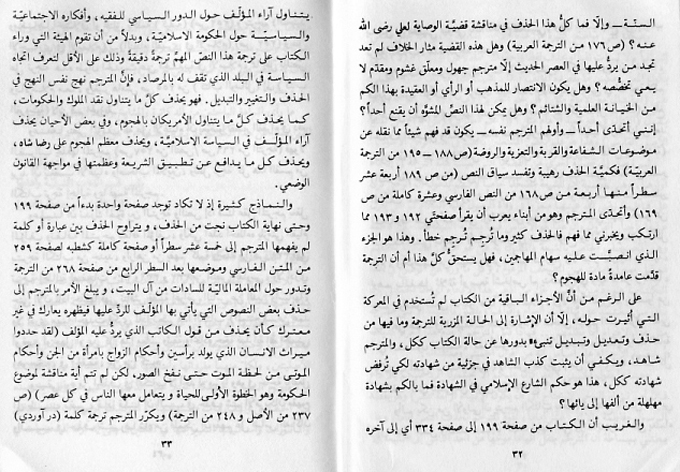 السنّة ــ وإلّا فما كلُّ هذا الحذف في مناقشة قضيّة الوصاية لعلي رضى الله
عنه؟ (ص ١٧٦ من الترجمة العربية) وهل هذه القضية مثار الخلاف لم تعد
تجد من يردُّ عليها في العصر الحديث إلّا مترجم جهول ومعلّق غشوم ومقدّم لا
يعي تخصُّصه؟ وهل يكون الانتصار للمذهب أو الرأي أو العقيدة بهذا الكم
من الخيانة العلمية والشتائم؟ وهل يمكن لهذا النصّ المشوَّه أن يقنع أحداً؟
إنني أتحدّى أحداً ــ وأولهم المترجم نفسه ــ يكون قد فهم شيئاً مما نقله عن
موضوعات الشفاعة والقربة والتعزية والروضة (ص ١٨٨ ــ ١٩٥ من الترجمة
العربيّة) فكميّة الحذف رهيبة وتفسد سياق النص (من ص ١٨٩ أربعة عشر
سطراً منها أربعة من ص ١٦٨ من النص الفارسي وعشرة كاملة من ص
١٦٩) وأتحدّى المترجم وهو من أبناء يعرب أن يقرأ صفحتي ١٩٢ و ١٩٣ مما
ارتكب ويخبرني مما فهم فالحذف كثير وما تُرجِم تُرجِم خطأ. وهذا هو الجزء
الذي انصبّت عليه سهام المهاجمين، فهل يستحقُّ كلُّ هذا أم أن الترجمة
قدّمت عامدةً مادة للهجوم؟
على الرغم من أنَّ الأجزاء الباقية من الكتاب لم تُستخدم في المعركة
التي أثيرت حوله، إلّا أن الإشارة إلى الحالة المزرية للترجمة وما فيها من
حذف وتعديل وتبديل تنبىء بدورها عن حالة الكتاب ككل، والمترجم
شاهد، ويكفي أن يثبت كذب الشاهد في جزئية من شهادته لكي تُرفض
شهادته ككل، هذا هو حكم الشارع الإسلامي في الشهادة فما بالكم بشهادة
مهلهلة من ألفها إلى يائها؟
والغريب أن الكتاب من صفحة ١٩٩ إلى صفحة ٣٣٤ أي إلى آخره
٣٢
يتناول آراء المؤلّف حول الدور السياسي للفقيه، وأفكاره الاجتماعيّة
والسياسيّة حول الحكومة الاسلاميّة، وبدلاً من أن تقوم الهيئة التي وراء
الكتاب على ترجمة هذا النصّ المهمّ ترجمةً دقيقةً وذلك على الأقل لتعرف اتجاه
السياسة في البلد الذي تقف له بالمرصاد، فإنَّ المترجم نهج نفس النهج في
الحذف والتغيير والتبديل. فهو يحذف كلَّ ما يتناول نقد الملوك والحكومات،
كما يحذف كلَّ ما يتناول الأمريكان بالهجوم، وفي بعض الأحيان يحذف
آراء المؤلّف في السياسة الاسلاميّة، ويحذف معظم الهجوم على رضا شاه،
ويحذف كل ما يدافع عن تطبيق الشريعة وعظمتها في مواجهة القانون
الوضعي.
والنماذج كثيرة إذ لا تكاد توجد صفحة واحدة بدءاً من صفحة ١٩٩
وحتى نهاية الكتاب نجت من الحذف، و يتراوح الحذف بين عبارة أو كلمة
لم يفهمها المترجم إلى خمسة عشر سطراً أو صفحة كاملة كشطبه لصفحة ٢٥٩
من المتن الفارسي وموضعها بعد السطر الرابع من صفحة ٢٦٨ من الترجمة
وتدور حول المعاملة الماليّة للسادات من آل البيت، و يبلغ الأمر بالمترجم إلى
حذف بعض النصوص التي يأتي بها المؤلف للردِّ عليها فيظهره يعارك في غير
معترك كأن يحذف من قول الكاتب الذي يردُّ عليه المؤلف (لقد حددوا
ميراث الانسان الذي يولد برأسين وأحكام الزواج بامرأة من الجن وأحكام
الموتى من لحظة الموت حتى نفخ الصور. لكن لم تتم أية مناقشة لموضوع
الحكومة وهو الخطوة الأولى للحياة و يتعامل معها الناس في كل عصر) (ص
٢٣٧ من الأصل و ٢٤٨ من الترجمة) ويكرّر المترجم ترجمة كلمة (درآوردي)
٣٣